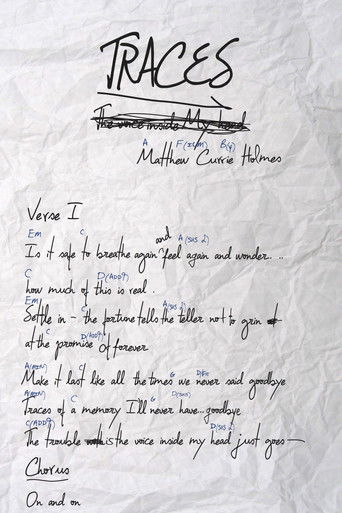 TRACES
The voice inside My head
A F(#11/M) B(4)
Matthew Currie Holmes
Verse I
Em C A(sus 2)
Is it safe to breathe again and feel again and wonder...
C D(ADD9)
how much of this is real.
Em A(sus 2)
Settle in - the fortune tells the teller not to grin
C D(ADD9)
at the promise of forever
A(MIN) C G D/F#
Make it last like all the times we never said goodbye
A(MIN) C G D(SUS)
Traces of a memory I'll never have goodbye
C(ADD9) D(SUS 2)
The trouble is the voice inside my head just goes—
Chorus
On and on